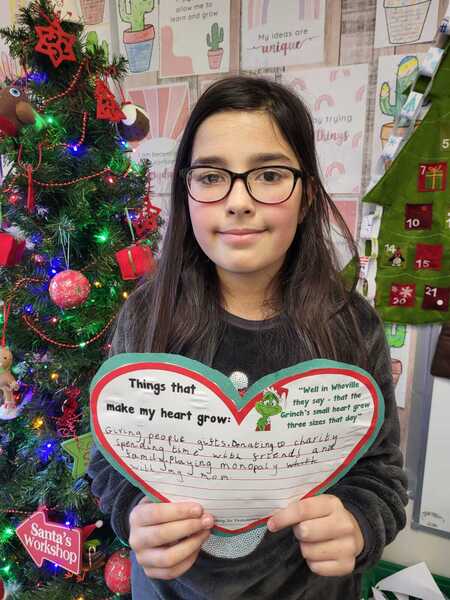 allow me to
learn and grow
My ideas are
unique
by trying
things
I am becoming
everyday
7
10
14
15
20
21
Things that
make my heart grow:
"Well in Whoville
they say - that the
Grinch's small heart grew
three sizes that day"
Giving people gifts, Donating to charity
spending time with friends and
family, playing monopoly
with my mom
Santa's
Workshop